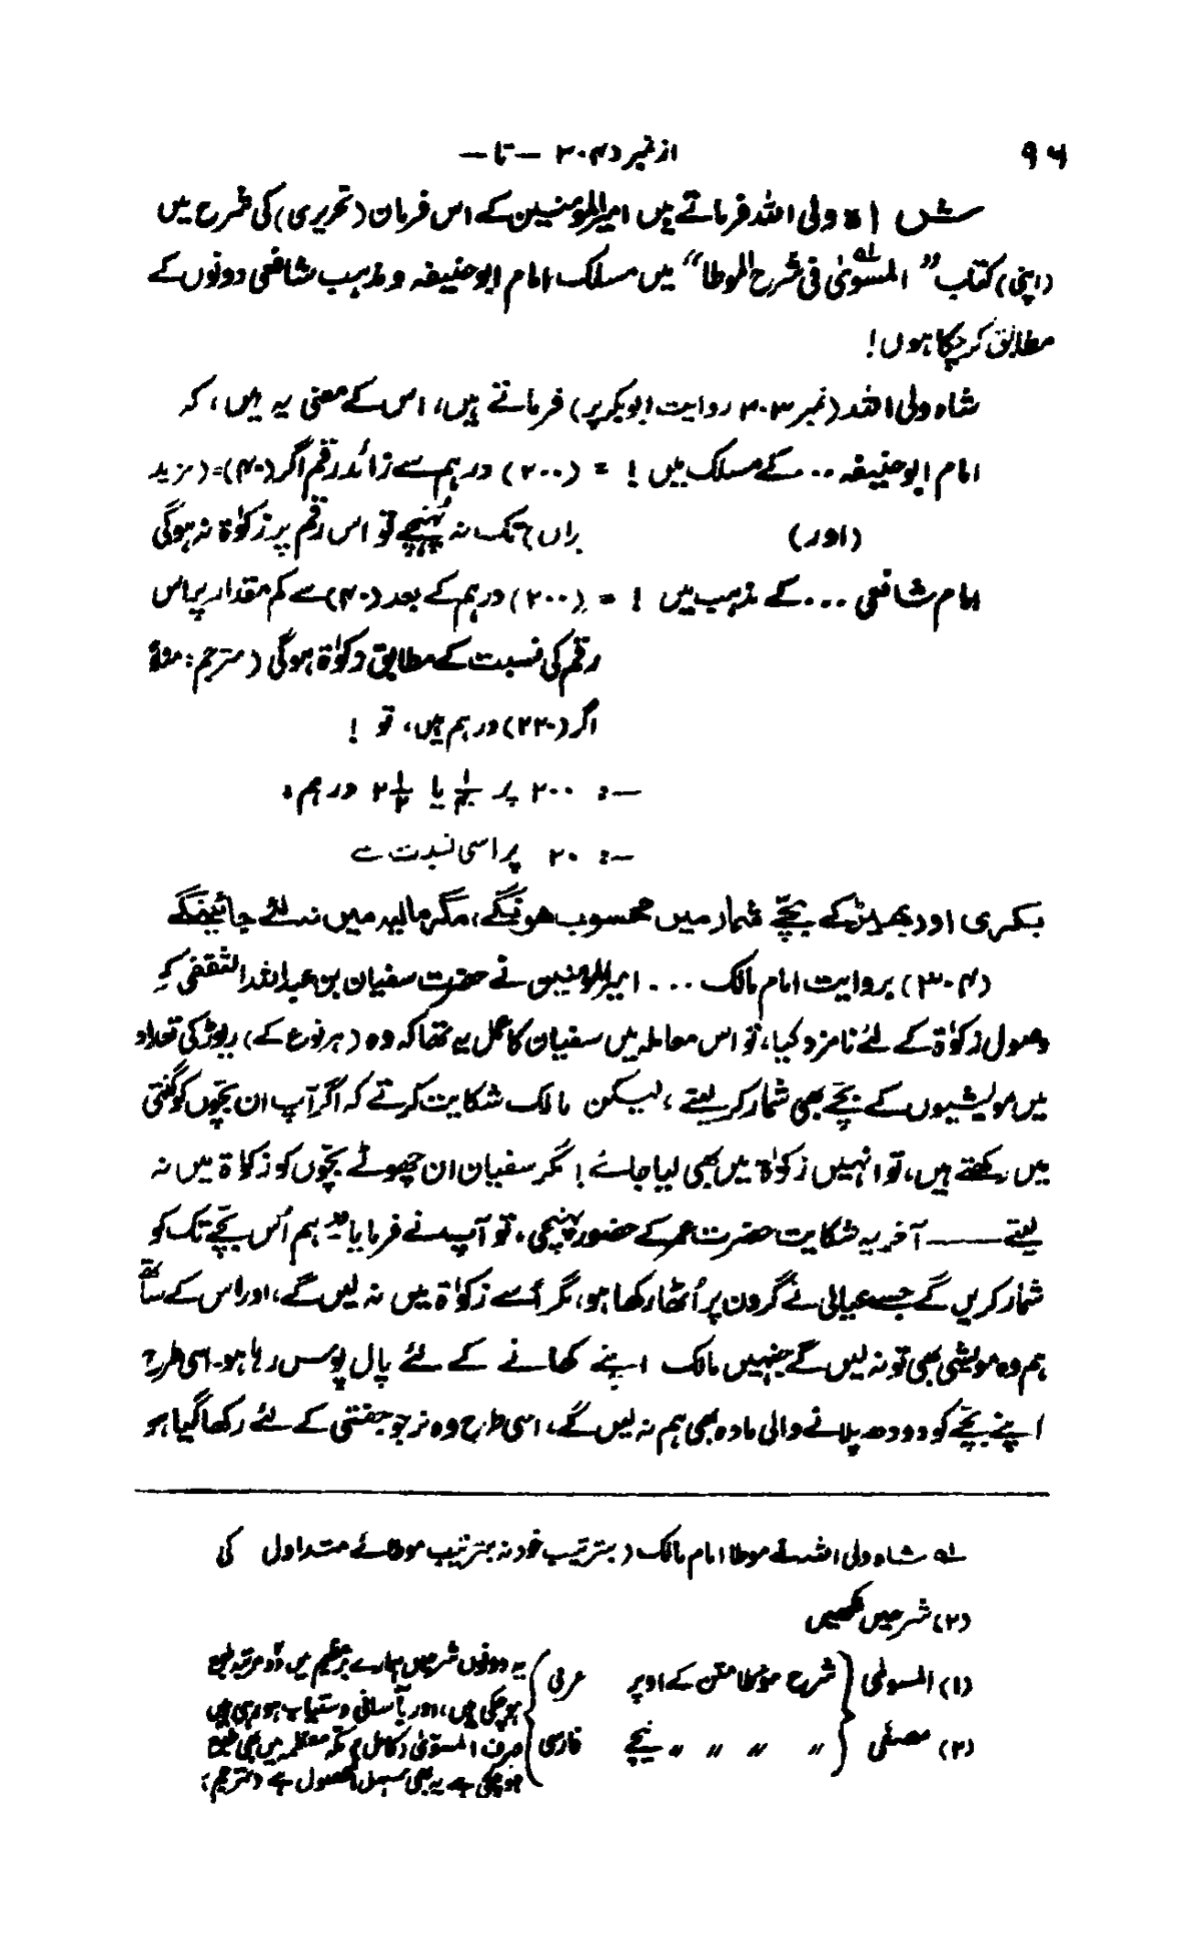 ۹۶
از نمبر د ۳۰۴ — تا —
ش ا ہ ولی اللہ فرماتے ہیں امیر المؤمنین کے اس فرمان (تحریری) کی شرح میں
(اپنی) کتاب "المسوّیٰ فی شرح الموطا" میں مسلک امام ابو حنیفہ و مذہب شافعی دونوں کے
مطابق کر چکا ہوں!
شاہ ولی اللہ (نمبر ۳۰۳ روایت ابوبکر پر) فرماتے ہیں، اس کے معنی یہ ہیں، کہ
امام ابو حنیفہ ... کے مسلک میں ! = (۲۰۰) درہم سے زائد رقم اگر (۴۰) = (مزید
براں) تک نہ پہنچے تو اس رقم پر زکوٰۃ نہ ہوگی
(اور)
امام شافعی ... کے مذہب میں ! = (۲۰۰) درہم کے بعد (۴۰) سے کم مقدار پر اس
رقم کی نسبت کے مطابق زکوٰۃ ہوگی (مترجم: مثلاً
اگر (۲۲۰) درہم ہیں، تو !
—: ۲۰۰ پر ۱/۴۰ یا ۲ ۱/۲ درہم،
—: ۲۰ پر اسی نسبت سے
بکری اور بھیڑ کے بچّے شمار میں محسوب ہونگے، مگر مالیہ میں نہ لئے جائینگے
(۳۰۴) بروایت امام مالک ... امیر المؤمنین نے حضرت سفیان بن عبد اللہ الثقفی کو
وصول زکوٰۃ کے لئے نامزد کیا، تو اس معاملہ میں سفیان کا عمل یہ تھا کہ وہ (ہر نوع کے) ریوڑ کی تعداد
میں مویشیوں کے بچّے بھی شمار کر لیتے، لیکن مالک شکایت کرتے کہ اگر آپ ان بچّوں کو گنتی
میں رکھتے ہیں، تو انہیں زکوٰۃ میں بھی لیا جائے! مگر سفیان ان چھوٹے بچّوں کو زکاۃ میں نہ
لیتے —— آخر یہ شکایت حضرت عمر کے حضور پہنچی، تو آپ نے فرمایا" ہم اُس بچّے تک کو
شمار کریں گے جسے عیالی نے گردن پر اُٹھا رکھا ہو، مگر اُسے زکوٰۃ میں نہ لیں گے، اور اس کے ساتھ
ہم وہ مویشی بھی تو نہ لیں گے جنہیں مالک اپنے کھانے کے لئے پال پوس رہا ہو۔ اسی طرح
اپنے بچّے کو دودھ پلانے والی مادہ بھی ہم نہ لیں گے، اسی طرح وہ نر جو جفتی کے لئے رکھا گیا ہو
لہ شاہ ولی اللہ نے موطا امام مالک (بترتیب خود نہ بترتیب موطائے متداول کی
(۲) شرحیں لکھیں
(۱) المسویٰ شرح مؤطا متن کے اوپر عربی
(۲) مصفیٰ " " " " نیچے فارسی
یہ دونوں شرحیں ہمارے برّعظیم میں دو مرتبہ طبع
ہو چکی ہیں، اور بآسانی دستیاب ہو رہی ہیں
صرف المسویٰ (کامل) مکہ معظمہ میں بھی طبع
ہو چکی ہے یہ بھی سہل الحصول ہے (مترجم)